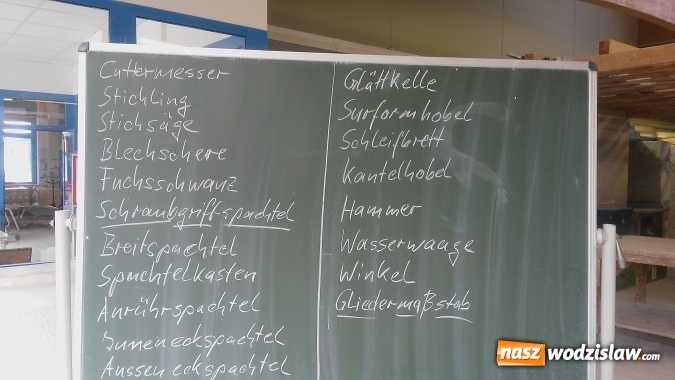 Cuttermesser
Stichling
Stichsäge
Blechschere
Fuchsschwanz
Schraubgriffspachtel
Breitspachtel
Spachtelkasten
Anrührspachtel
Inneneckspachtel
Ausseneckspachtel
Glättkelle
Surformhobel
Schleifbrett
Kantelhobel
Hammer
Wasserwaage
Winkel
Gliedermaßstab
nasz wodzislaw.com